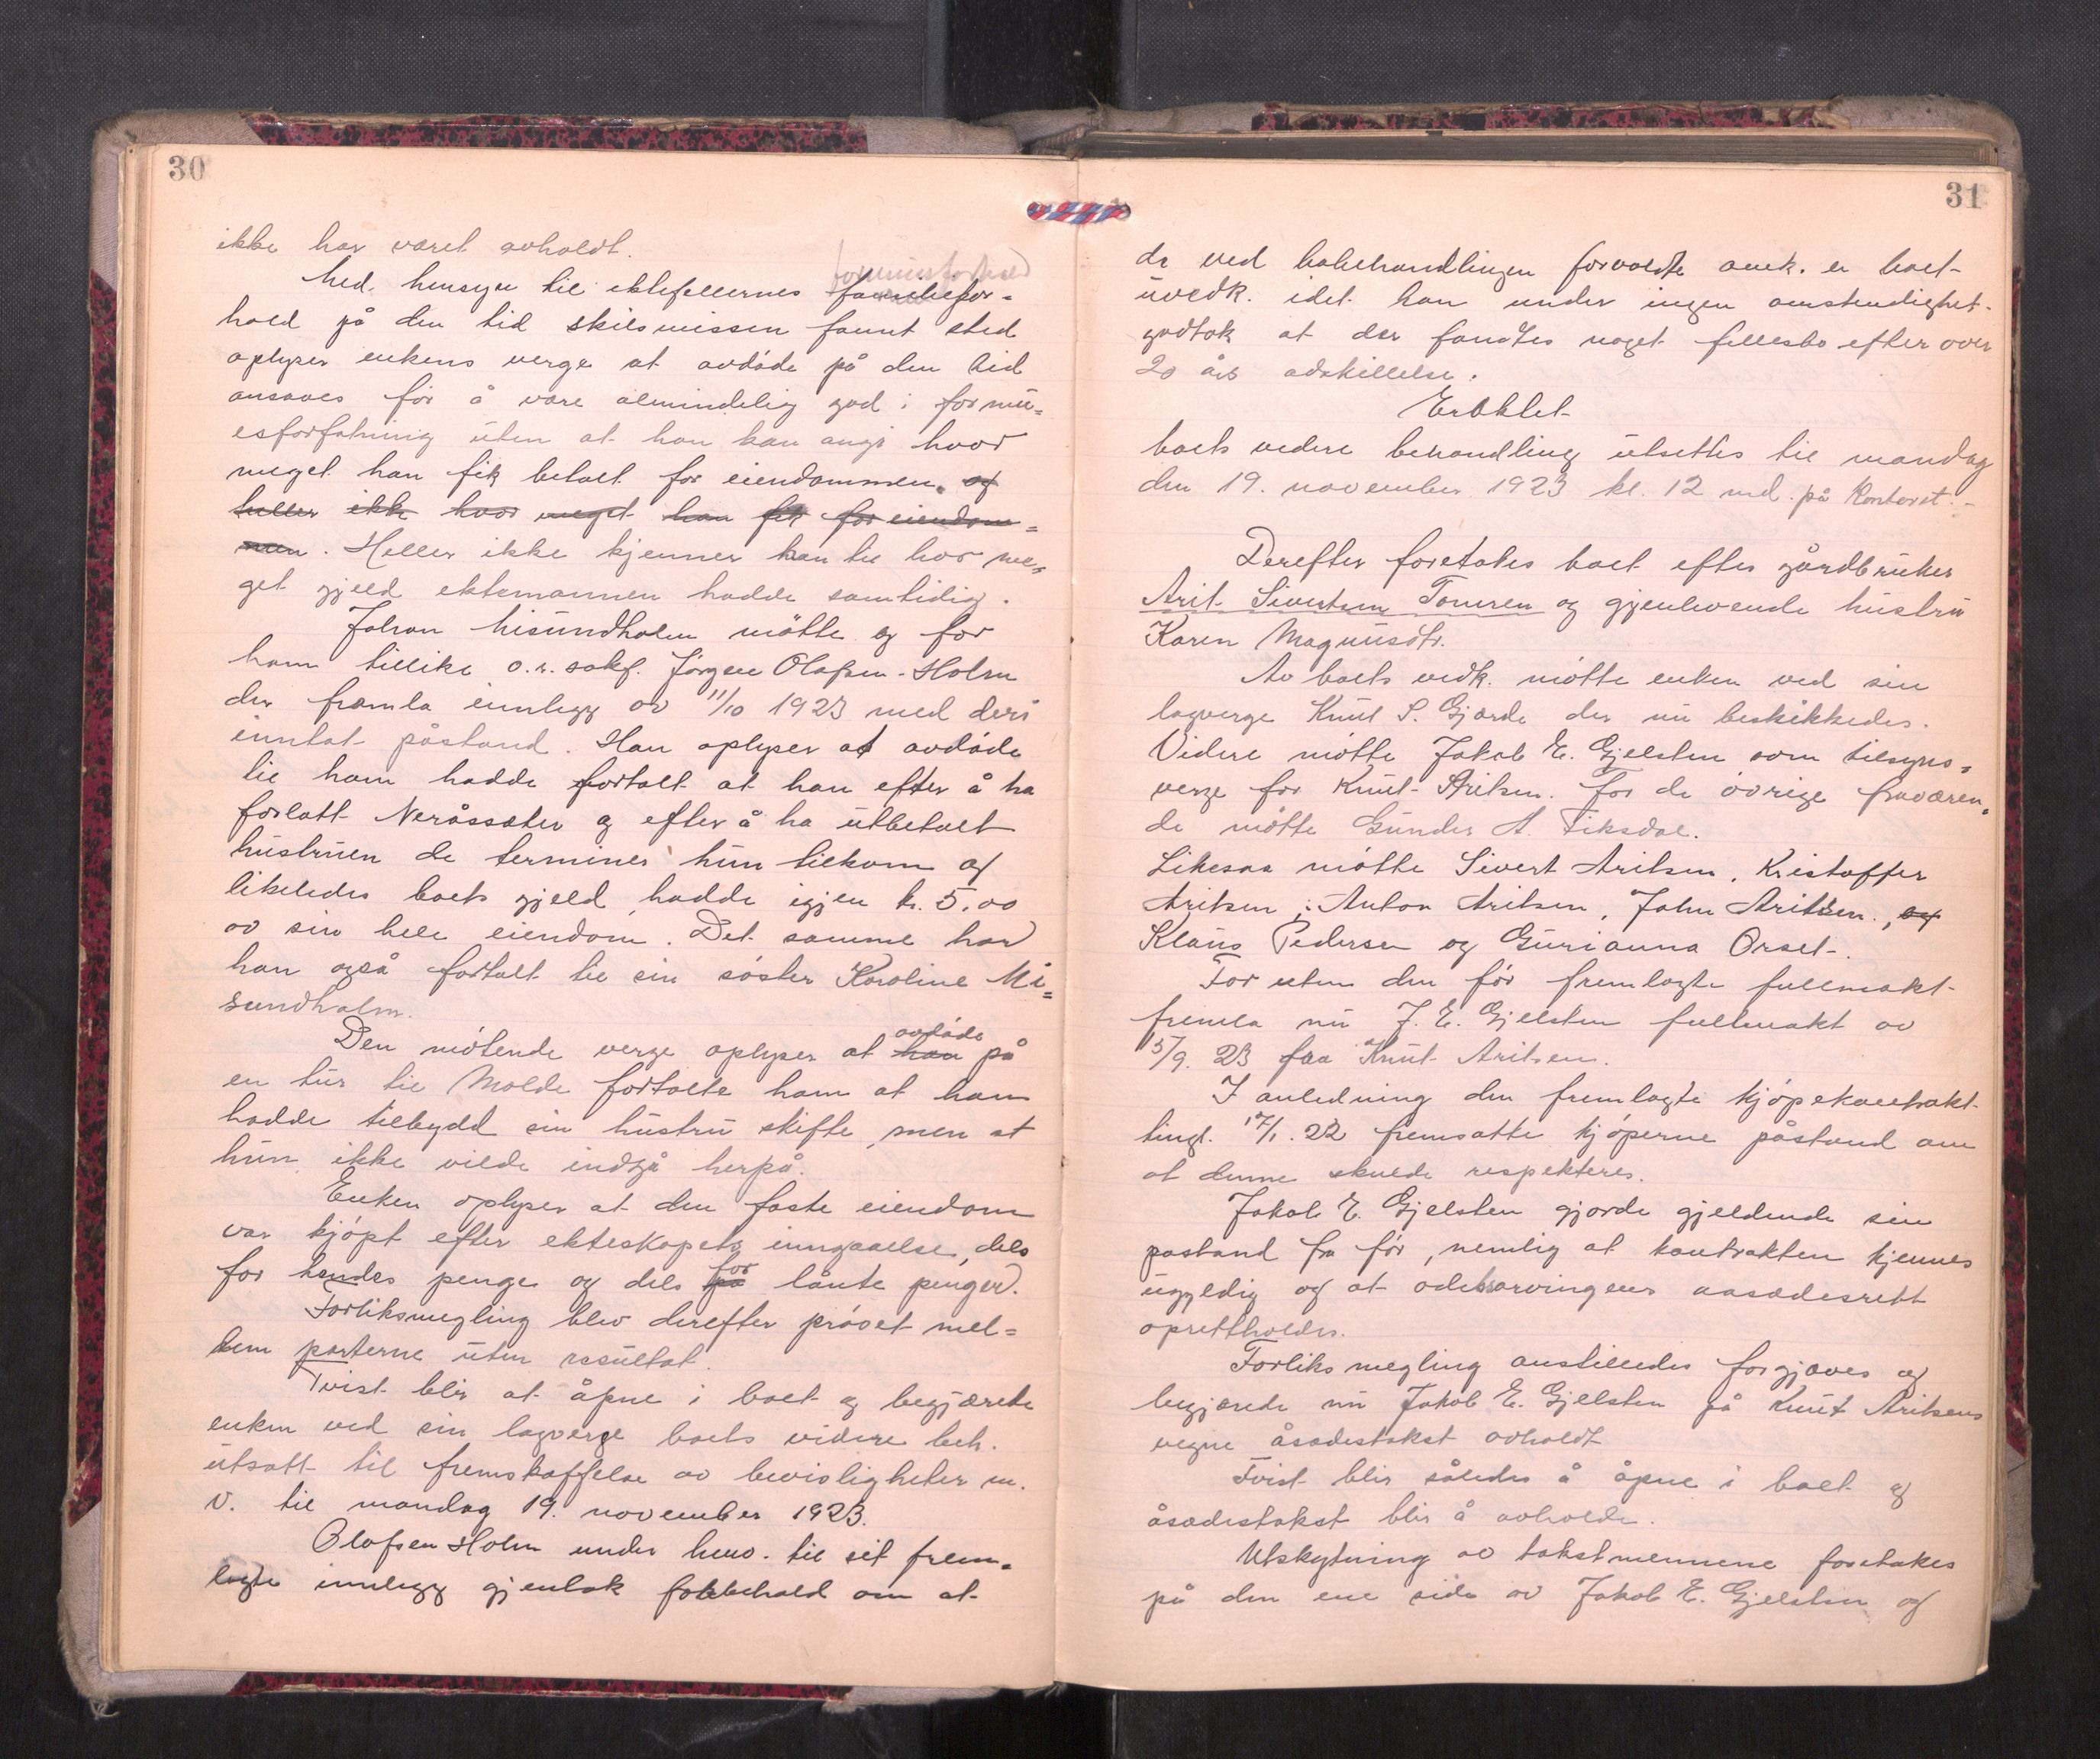 30
ikke har været avholdt.
Med hensyn til ektefellernes familiefor=
hold på den tid skilsmissen fannt sted
oplyser enkens verge at avdøde på den tid
ansaaes for å være almindelig god i formu=
esforfatning uten at han kan angi hvor
meget han fik betalt for eiendommen. og
heller ikke hvor meget han fik for eiendom=
men. Heller ikke kjenner han til hvor me=
get gjeld ektemannen hadde samtidig.
Johan Misundholm møtte og for
ham tillike o.r. sakf. Jørgen Olafsen-Holm
der framla innlegg av 11/10 1923 med deri
inntat påstand. Han oplyser at avdøde
til ham hadde fortalt at han efter å ha
forlatt Neråssæter og efter å ha utbetalt
hustruen de terminer hun tilkom og
likeledes boets gjeld, hadde igjen kr. 5,00
av sin hele eiendom. Det samme har
han også fortalt til sin søster Karoline Mi=
sundholm.
Den møtende verge oplyser at han avdøde på
en tur til Molde fortalte ham at han
hadde tilbydd sin hustru skifte, men at
hun ikke vilde indgå herpå.
Enken oplyser at den faste eiendom
var kjøpt efter ekteskapets inngaaelse, dels
for hendes penge og dels på for lånte penger.
Forliksmegling blev derefter prøvet mel=
lem parterne uten resultat.
Tvist blir at åpne i boet og begjærede
enken ved sin lagverge boets videre beh.
utsatt til fremskaffelse av bevisligheter m.
v. til mandag 19. november 1923.
Olafsen Holm under henv. til sit frem=
lagte innlegg gjentok forbehold om at
31
de ved bobehandlingen forvoldte omk. er boet
uvedk. idet han under ingen omstendighet
godtok at der fandtes noget fellesbo efter over
20 års adskillelse.
Erklet
boets videre behandling utsettes til mandag
den 19. november 1923 kl. 12 md. på kontoret.-
Derefter foretokes boet efter gårdbruker
Arit Sivertsen Tomren og gjenlevende hustru
Karen Magnusdtr.
Av boets vedk. møtte enken ved sin
lagverge Knut S. Gjærde der nu beskikkedes.
Videre møtte Jakob E. Gjelsten som tilsyns=
verge for Knut Aritsen. For de øvrige fraværen=
de møtte Gunder A. Fiksdal.
Likesaa møtte Sivert Aritsen, Kristoffer
Aritsen, Anton Aritsen, John Aritsen, og
Klaus Pedersen og Gurianna Orset.
Foruten den før fremlagte fullmakt
fremla nu J. E. Gjelsten fullmakt av
15/9. 23 fra Knut Aritsen.
I anledning den fremlagte kjøpekontrakt
tingl. 17/1. 22 fremsatte kjøperne påstand om
at denne skulde respekteres.
Jakob E. Gjelsten gjorde gjeldende sin
påstand fra før, nemlig at kontrakten kjennes
ugyldig og at odelsarvingens aasædesrett
oprettholdes.
Forliksmegling anstilledes forgjæves og
begjærede nu Jakob E. Gjelsten på Knut Aritsens
vegne åsædestakst avholdt
Tvist blir således å åpne i boet og
åsædestakst blir å avholde.
Utskytning av takstmennene foretakes
på den ene side av Jakob E. Gjelsten og